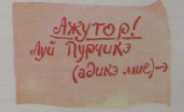 Ажутор!
Луй Пурчикэ
(адикэ мие)→